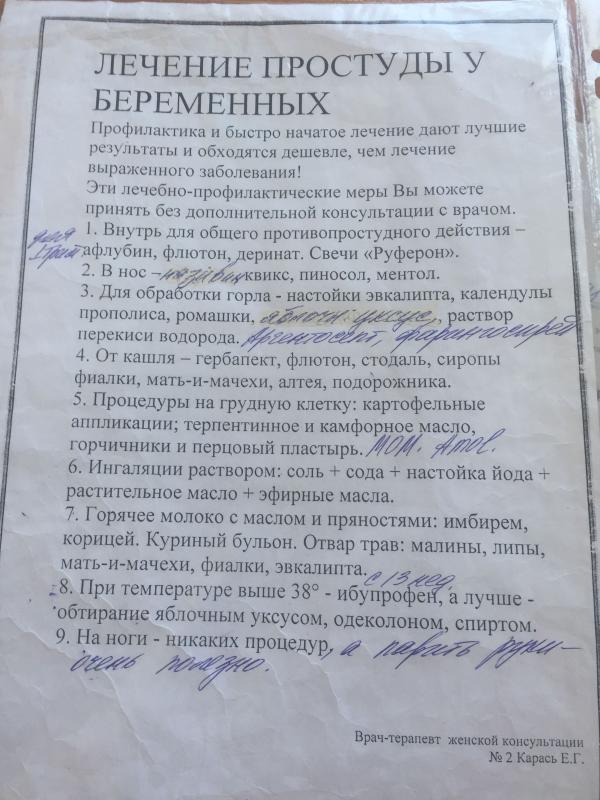 ЛЕЧЕНИЕ ПРОСТУДЫ У
БЕРЕМЕННЫХ
Профилактика и быстро начатое лечение дают лучшие
результаты и обходятся дешевле, чем лечение
выраженного заболевания!
Эти лечебно-профилактические меры Вы можете
принять без дополнительной консультации с врачом.
1. Внутрь для общего противопростудного действия –
афлубин, флютон, деринат. Свечи «Руферон».
2. В нос – називин квикс, пиносол, ментол.
3. Для обработки горла - настойки эвкалипта, календулы
прополиса, ромашки, яблочн уксус, раствор
перекиси водорода. Аргентосепт, фарингоспрей
4. От кашля – гербапект, флютон, стодаль, сиропы
фиалки, мать-и-мачехи, алтея, подорожника.
5. Процедуры на грудную клетку: картофельные
аппликации; терпентинное и камфорное масло,
горчичники и перцовый пластырь. МОМ. Amol.
6. Ингаляции раствором: соль + сода + настойка йода +
растительное масло + эфирные масла.
7. Горячее молоко с маслом и пряностями: имбирем,
корицей. Куриный бульон. Отвар трав: малины, липы,
мать-и-мачехи, фиалки, эвкалипта.
с 13 нед.
8. При температуре выше 38° - ибупрофен, а лучше -
обтирание яблочным уксусом, одеколоном, спиртом.
9. На ноги - никаких процедур, а парить руки –
очень полезно.
Врач-терапевт женской консультации
№ 2 Карась Е.Г.